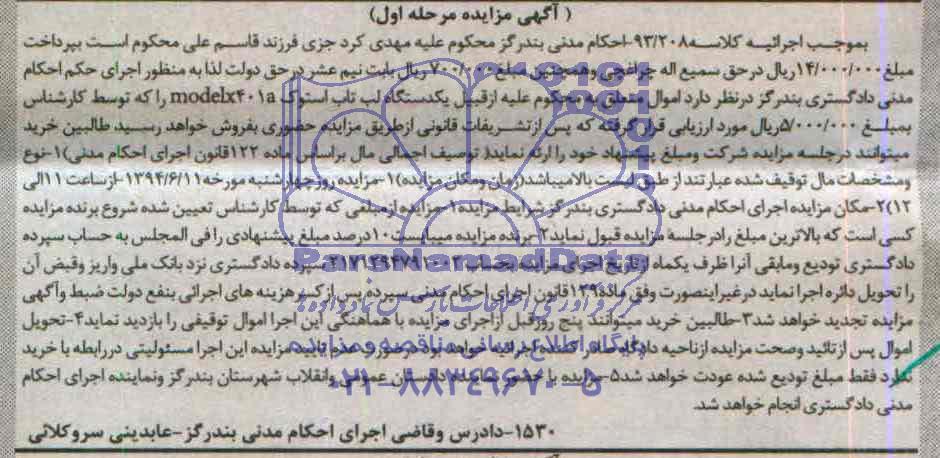 ( آگهی مزایده مرحله اول)
بموجب اجرائیه کلاسه۹۳/۲۰۸-احکام مدنی بندرگز محکوم علیه مهدی کرد جزی فرزند قاسم علی محکوم است بپرداخت
مبلغ۱۴/۰۰۰/۰۰۰ریال درحق سمیع اله چراغچی وهمچنین مبلغ۷۰۰/۰۰۰ ریال بابت نیم عشر درحق دولت لذا به منظور اجرای حکم احکام
مدنی دادگستری بندرگز درنظر دارد اموال متعلق به محکوم علیه ازقبیل یکدستگاه لپ تاپ استوک modelx۴۰۱a را که توسط کارشناس
بمبلغ ۵/۰۰۰/۰۰۰ریال مورد ارزیابی قرار گرفته که پس ازتشریفات قانونی ازطریق مزایده حضوری بفروش خواهد رسید طالبین خرید
میتوانند درجلسه مزایده شرکت ومبلغ پیشنهاد خود را ارئه نماید( توصیف اجمالی مال براساس ماده ۱۲۲قانون اجرای احکام مدنی)۱-نوع
ومشخصات مال توقیف شده عبارتند از طبق لیست بالامیباشد(زمان ومکان مزایده)۱-مزایده روزچهارشنبه مورخه۱۳۹۴/۶/۱۱-ازساعت ۱۱الی
۱۲)۲-مکان مزایده اجرای احکام مدنی دادگستری بندرگز شرایط مزایده۱-مزایده ازمبلغی که توسط کارشناس تعیین شده شروع برنده مزایده
کسی است که بالاترین مبلغ رادرجلسه مزایده قبول نماید۲-برنده مزایده میبایست۱۰درصد مبلغ پیشنهادی رافی المجلس به حساب سپرده
دادگستری تودیع ومابقی آنرا ظرف یکماه ازتاریخ اجرای مزایده بحساب سپرده دادگستری نزد بانک ملی واریز وقبض آن
را تحویل دائره اجرا نماید درغیراینصورت وفق ماده۱۲۹قانون اجرای احکام مدنی سپرده پس ازکسر هزینه های اجرائی بنفع دولت ضبط وآگهی
مزایده تجدید خواهد شد۳-طالبین خرید میتوانند پنج روزقبل ازاجرای مزایده با هماهنگی این اجرا اموال توقیفی را بازدید نماید۴-تحویل
اموال پس ازتائید وصحت مزایده ازناحیه دادگاه صادر کننده اجرائیه خواهد بود درصورت عدم تایید مزایده این اجرا مسئولیتی دررابطه با خرید
ندارد فقط مبلغ تودیع شده عودت خواهد شد۵-مزایده با حضور نماینده دادستان عمومی وانقلاب شهرستان بندرگز ونماینده اجرای احکام
مدنی دادگستری انجام خواهد شد.
۱۵۳۰-دادرس وقاضی اجرای احکام مدنی بندرگز-عابدینی سروکلائی
ParsNamadData
پایگاه اطلاع رسانی مناقصه و مزایده
۰۲۱-۸۸۳۴۹۶۷۰-۵